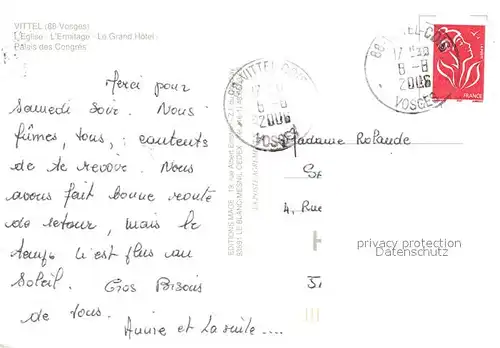 VITTEL (88 Vosges)
L'Eglise - L'Ermitage - Le Grand Hôtel -
Palais des Congrès
Merci pour
samedi soir. Nous
fûmes, tous, contents
de te revoir. Nous
avons fait bonne route
de retour, mais le
temps n'est plus au
soleil. Gros Bisous
de tous.
Annie et la suite....
EDITIONS MAGE - 19, rue Albert
93591 LE BLANC MESNIL CEDEX
88 VITTEL
8-8
2006
VOSGES
88 VITTEL
17
8-8
2006
VOSGES
FRANCE
Madame Rolande
4, Rue
privacy protection
Datenschutz